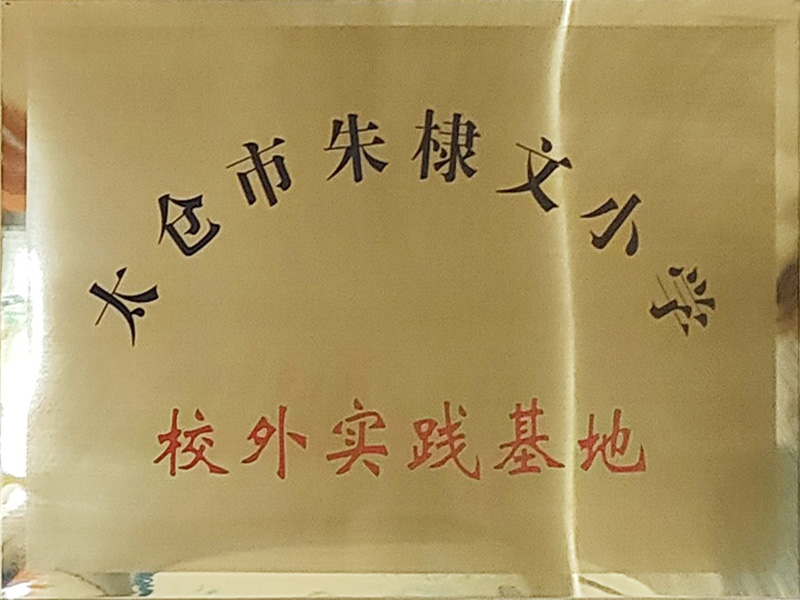 太仓市朱棣文小学
校外实践基地